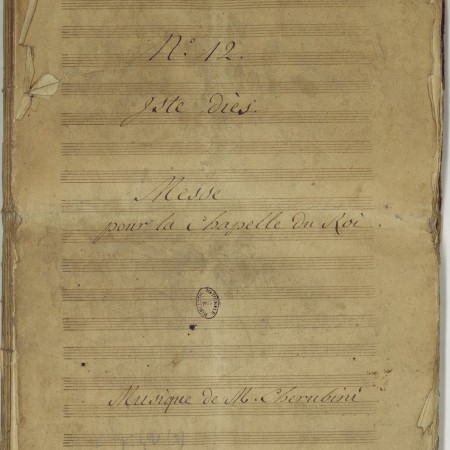 N.º 12.
Iste dies.
Messe
pour la Chapelle du Roi.
Musique de M. Cherubini